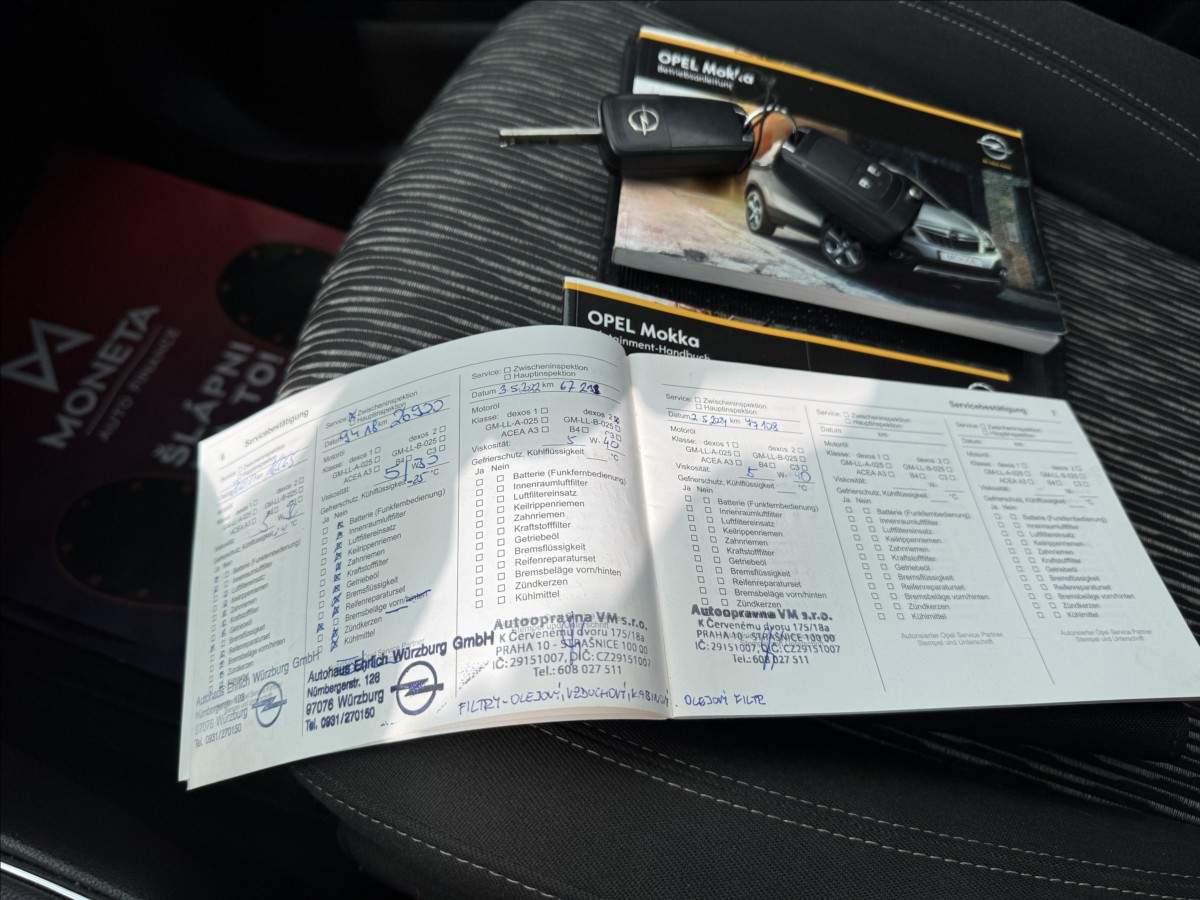 OPEL Mokka
Betriebsanleitung
OPEL Mokka
tainment-Handbuch
MONETA
AUTO
ŠLÁPNI
TO!
Servicebestätigung
Service: Zwischeninspektion
Hauptinspektion
Datum km 26900
Motoröl
Klasse: dexos 1 dexos 2
GM-LL-A-025 GM-LL-B-025
ACEA A3 B4 C3
Viskosität: 5 W- 30
Gefrierschutz, Kühlflüssigkeit -25 °C
Ja Nein
Batterie (Funkfernbedienung)
Innenraumluftfilter
Luftfiltereinsatz
Keilrippenriemen
Zahnriemen
Kraftstofffilter
Getriebeöl
Bremsflüssigkeit
Reifenreparaturset
Bremsbeläge vorn/hinten
Zündkerzen
Kühlmittel
Autohaus Ehrlich Würzburg GmbH
Nürnbergerstr. 128
97076 Würzburg
Tel. 0931/270150
Autohaus Ehrlich Würzburg GmbH
Nürnbergerstr. 128
97076 Würzburg
Tel. 0931/270150
Service: Zwischeninspektion
Hauptinspektion
Datum 3.5.2022 km 67 218
Motoröl
Klasse: dexos 1 dexos 2
GM-LL-A-025 GM-LL-B-025
ACEA A3 B4 C3
Viskosität: 5 W- 40
Gefrierschutz, Kühlflüssigkeit °C
Ja Nein
Batterie (Funkfernbedienung)
Innenraumluftfilter
Luftfiltereinsatz
Keilrippenriemen
Zahnriemen
Kraftstofffilter
Getriebeöl
Bremsflüssigkeit
Reifenreparaturset
Bremsbeläge vorn/hinten
Zündkerzen
Kühlmittel
Autoopravna VM s.r.o.
K Červenému dvoru 175/18a
PRAHA 10 - STRAŠNICE 100 00
IČ: 29151007, DIČ: CZ29151007
Tel.: 608 027 511
FILTRY - OLEJOVÝ, VZDUCHOVÝ, KABINOVÝ
Service: Zwischeninspektion
Hauptinspektion
Datum 2.5.2024 km 47108
Motoröl
Klasse: dexos 1 dexos 2
GM-LL-A-025 GM-LL-B-025
ACEA A3 B4 C3
Viskosität: 5 W- 40
Gefrierschutz, Kühlflüssigkeit °C
Ja Nein
Batterie (Funkfernbedienung)
Innenraumluftfilter
Luftfiltereinsatz
Keilrippenriemen
Zahnriemen
Kraftstofffilter
Getriebeöl
Bremsflüssigkeit
Reifenreparaturset
Bremsbeläge vorn/hinten
Zündkerzen
Autoopravna VM s.r.o.
K Červenému dvoru 175/18a
PRAHA 10 - STRAŠNICE 100 00
IČ: 29151007, DIČ: CZ29151007
Tel.: 608 027 511
OLEJOVÝ FILTR
Servicebestätigung 7
Service: Zwischeninspektion
Hauptinspektion
Datum km
Motoröl
Klasse: dexos 1 dexos 2
GM-LL-A-025 GM-LL-B-025
ACEA A3 B4 C3
Viskosität: W-
Gefrierschutz, Kühlflüssigkeit °C
Ja Nein
Batterie (Funkfernbedienung)
Innenraumluftfilter
Luftfiltereinsatz
Keilrippenriemen
Zahnriemen
Kraftstofffilter
Getriebeöl
Bremsflüssigkeit
Reifenreparaturset
Bremsbeläge vorn/hinten
Zündkerzen
Kühlmittel
Autorisierter Opel Service Partner
Stempel und Unterschrift
Service: Zwischeninspektion
Hauptinspektion
Datum km
Motoröl
Klasse: dexos 1 dexos 2
GM-LL-A-025 GM-LL-B-025
ACEA A3 B4 C3
Viskosität: W-
Gefrierschutz, Kühlflüssigkeit °C
Ja Nein
Batterie (Funkfernbedienung)
Innenraumluftfilter
Luftfiltereinsatz
Keilrippenriemen
Zahnriemen
Kraftstofffilter
Getriebeöl
Bremsflüssigkeit
Reifenreparaturset
Bremsbeläge vorn/hinten
Zündkerzen
Kühlmittel
Autorisierter Opel Service Partner
Stempel und Unterschrift